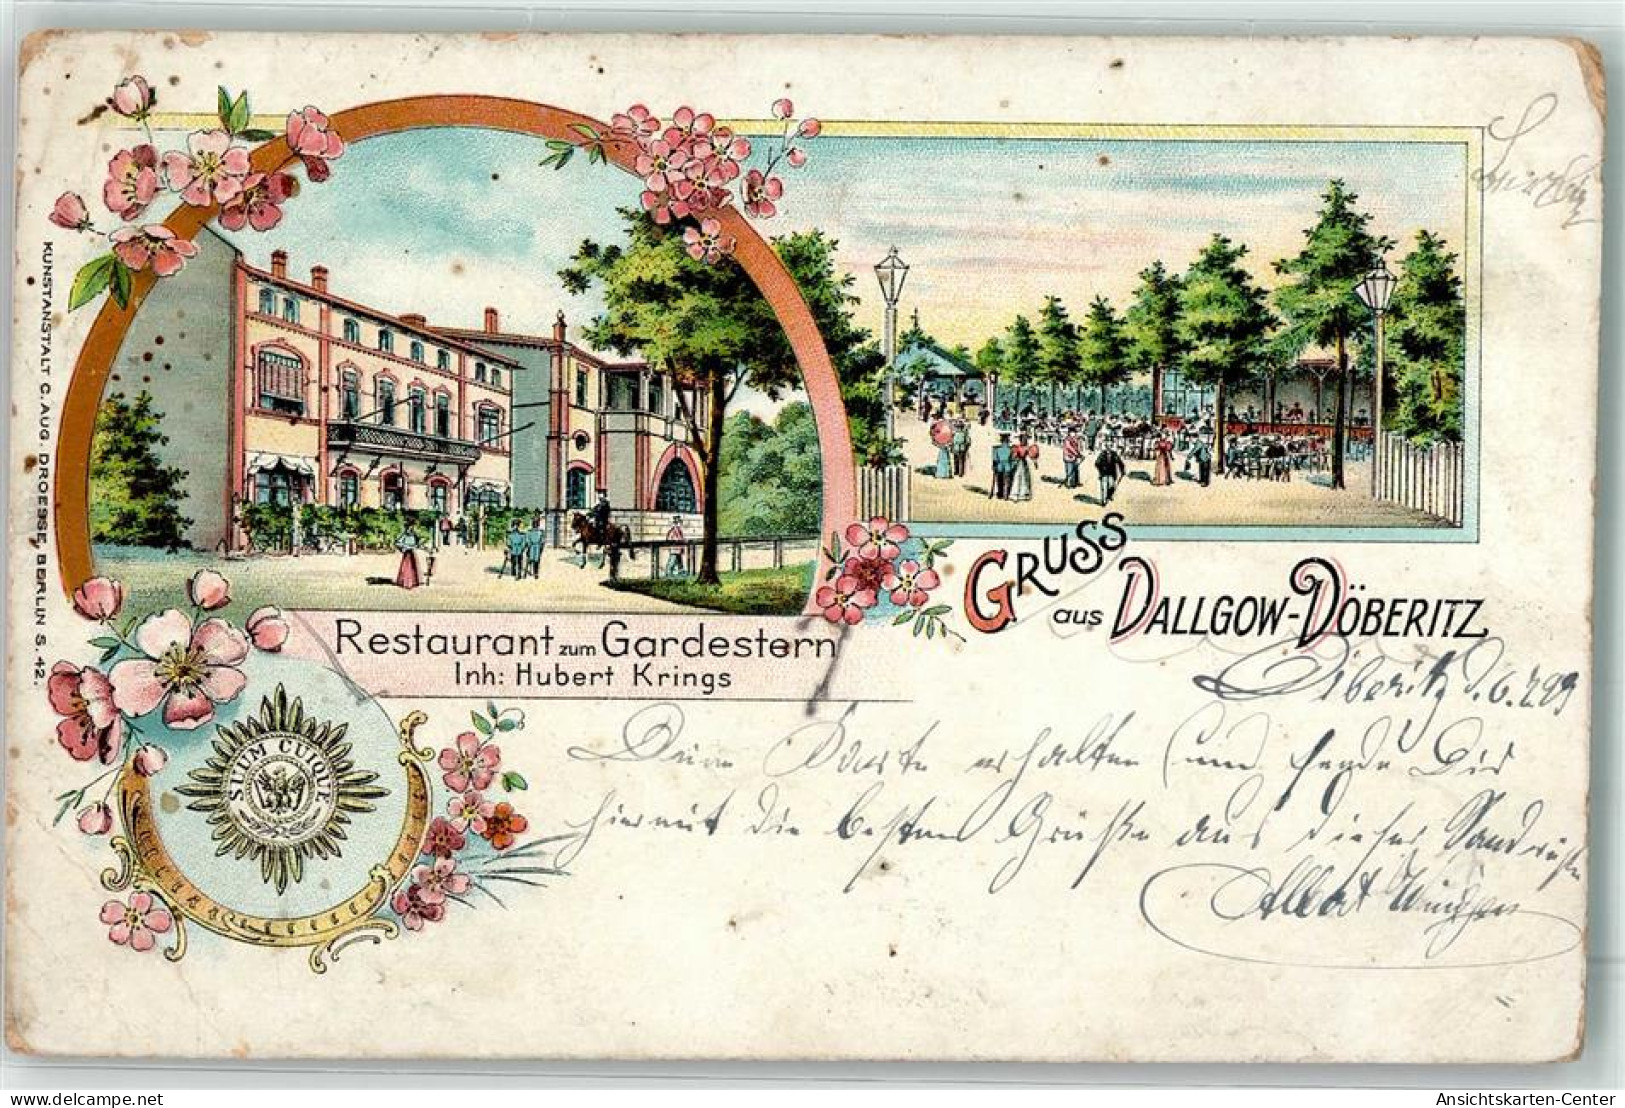 KUNSTANSTALT C. AUG. DROESSE, BERLIN S. 42.
Restaurant zum Gardestern
Inh: Hubert Krings
SUUM CUIQUE
GRUSS
aus DALLGOW-DÖBERITZ
Döberitz d. 6.7.99
Deine Karte erhalten und sende Dir
hiermit die besten Grüße aus dieser Sandwüste
Albert
www.ak-ansichtskarten.de
Ansichtskarten-Center